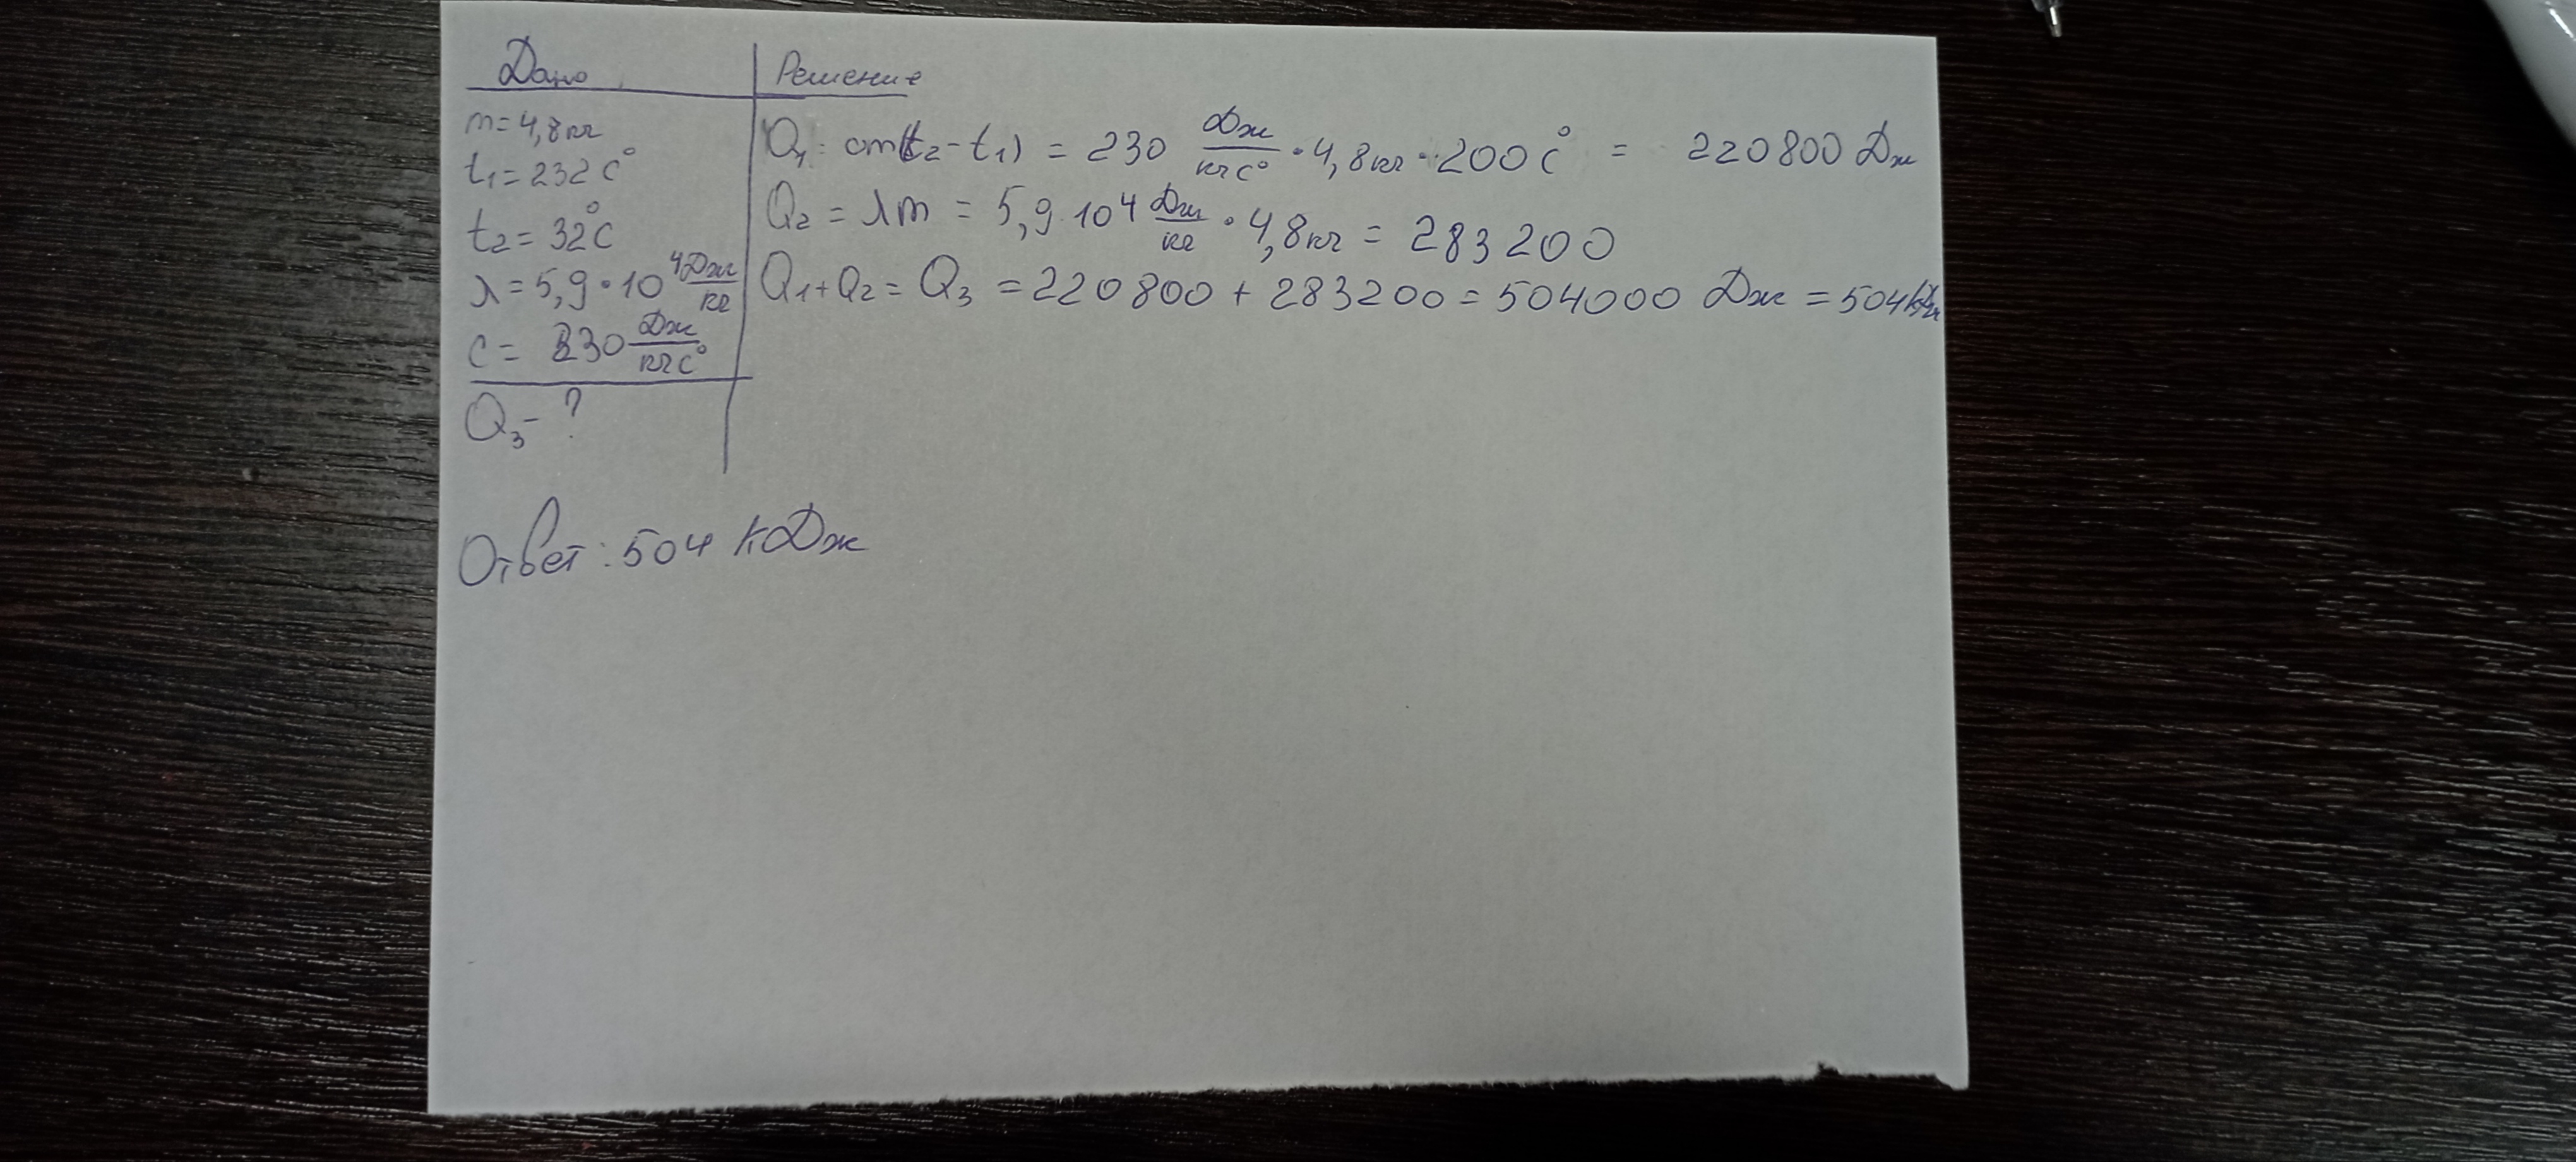 Дано
m=4,8кг
t₁=232 C°
t₂=32°C
λ=5,9•10⁴ Дж/кг
C= 230 Дж/кгC°
Q₃-?
Решение
Q₁= cm(t₂-t₁) = 230 Дж/кгC° • 4,8кг • 200 C° = 220800 Дж
Q₂ = λm = 5,9 10⁴ Дж/кг • 4,8кг = 283200
Q₁+Q₂= Q₃ =220800 + 283200=504000 Дж =504кДж
Ответ: 504 кДж